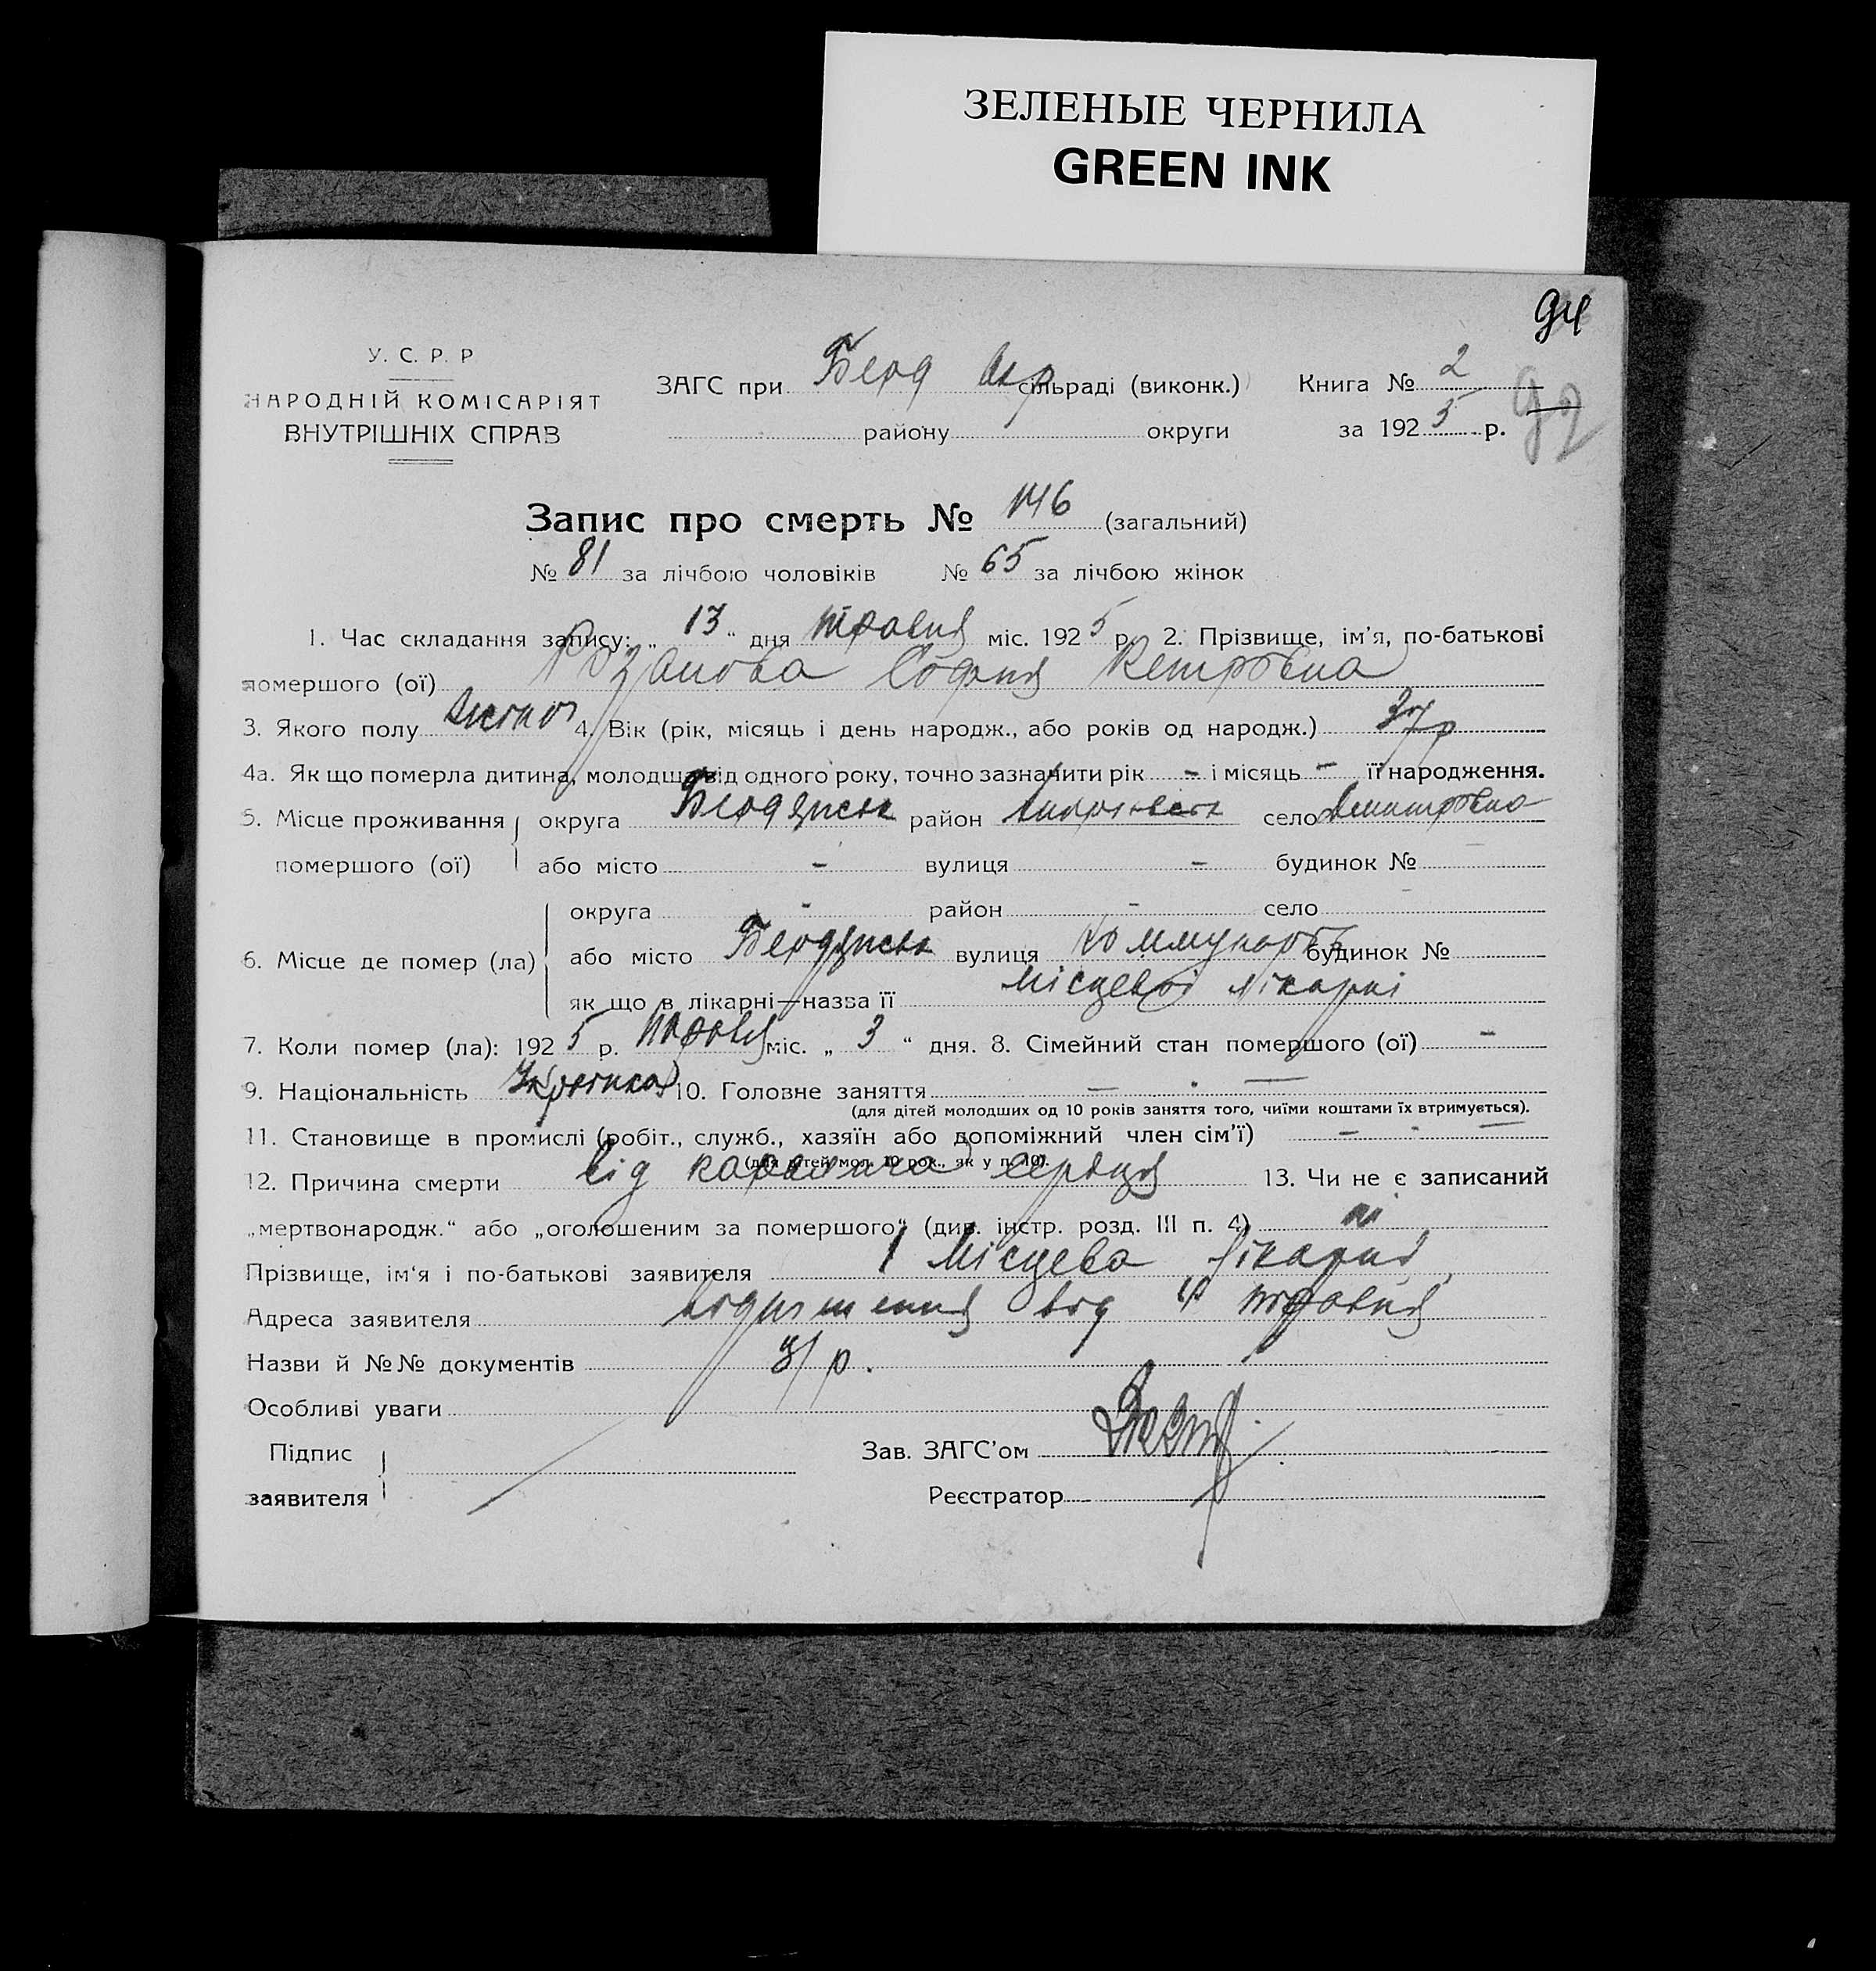 ЗЕЛЕНЫЕ ЧЕРНИЛА
GREEN INK
94
У. С. Р. Р
НАРОДНІЙ КОМІСАРІЯТ
ВНУТРІШНІХ СПРАВ
ЗАГС при Берд Окр сільраді (виконк.) Книга № 2
району округи за 1925 р. 92
Запис про смерть № 146 (загальний)
№ 81 за лічбою чоловіків № 65 за лічбою жінок
1. Час складання запису: „ 13 “ дня травня міс. 1925 р. 2. Прізвище, ім’я, по-батькові
помершого (ої) Розанова Софія Петровна
3. Якого полу 4. Вік (рік, місяць і день народж., або років од народж.) 37 р
4а. Як що померла дитина, молодша від одного року, точно зазначити рік - і місяць - її народження.
5. Місце проживання округа Бердянськ район село Дмитровка
помершого (ої) або місто - вулиця - будинок №
округа - район - село
6. Місце де помер (ла) або місто Бердянськ вулиця будинок №
як що в лікарні—назва її місцевої лікарні
7. Коли помер (ла): 1925 р. травня міс. „ 3 “ дня. 8. Сімейний стан помершого (ої) -
9. Національність Українка 10. Головне заняття —
(для дітей молодших од 10 років заняття того, чиїми коштами їх втримується).
11. Становище в промислі (робіт., служб., хазяїн або допоміжний член сім’ї) —
(для дітей мол. 10 рок., як у п. 10).
12. Причина смерти від серьця 13. Чи не є записаний
„мертвонародж.“ або „оголошеним за помершого“ (див. інстр. розд. III п. 4) ні
Прізвище, ім‘я і по-батькові заявителя Місцева лікарня
Адреса заявителя від травня
Назви й №№ документів р.
Особливі уваги
Підпис Зав. ЗАГС’ом
заявителя Реєстратор